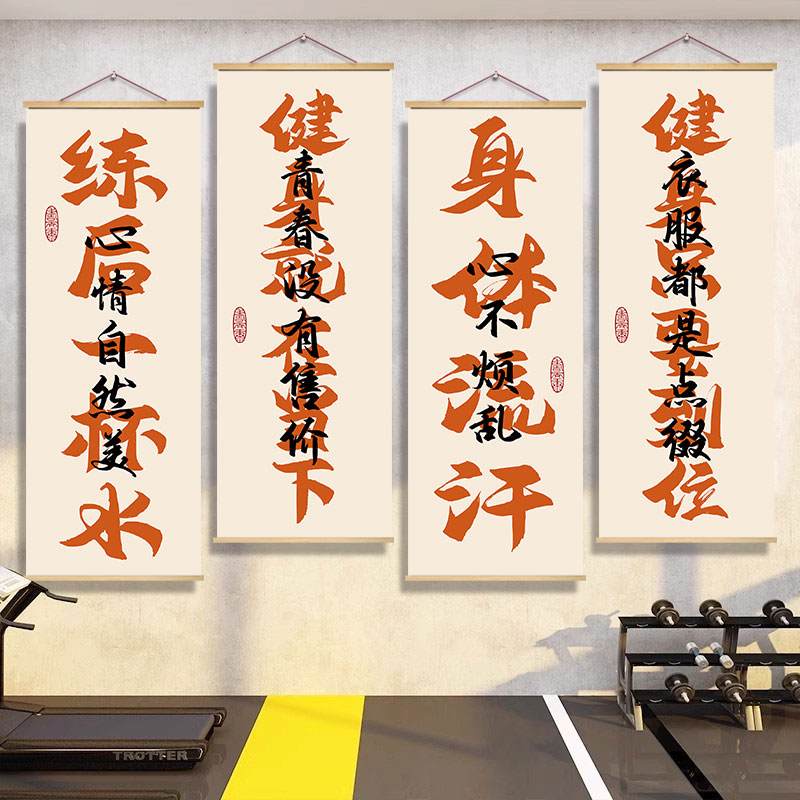 练后一杯水
心情自然美
健身就在当下
青春没有售价
身体流汗
心不烦乱
健身只要到位
衣服都是点缀
TROTTER